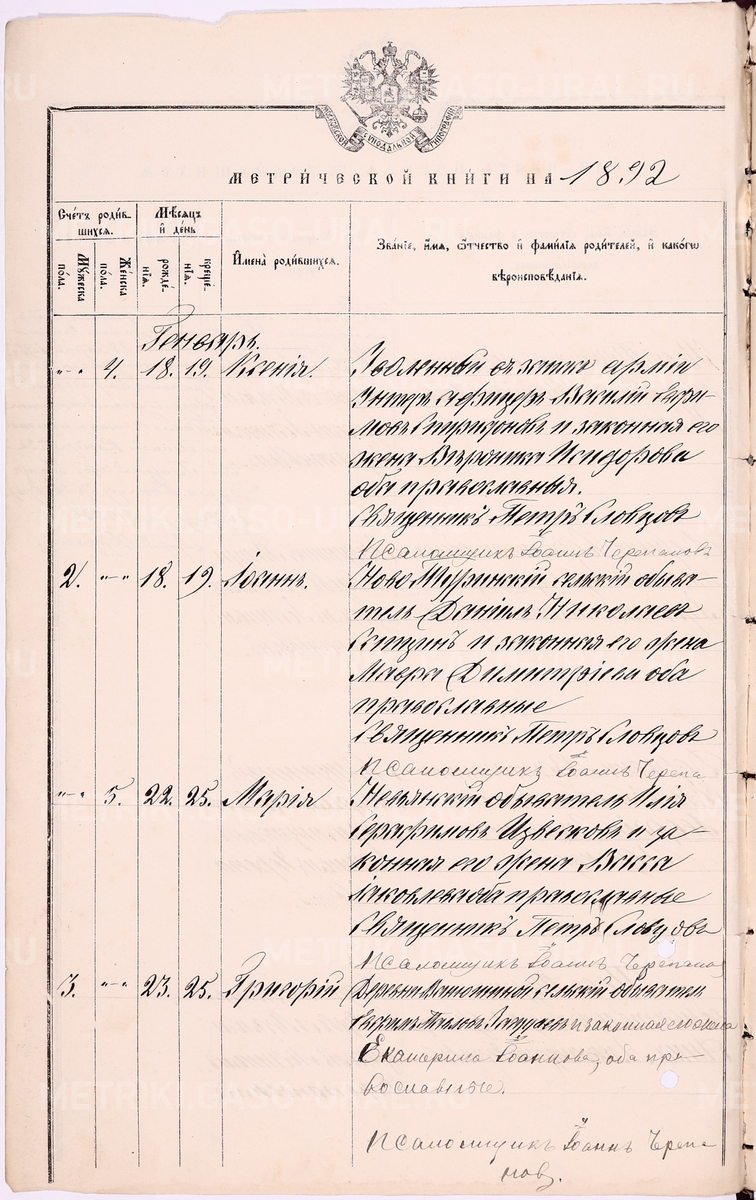 МОСКОВСКОЙ СѴНОДАЛЬНОЙ ТИПОГРАФІИ
МЕТРИ́ЧЕСКОЙ КНИ́ГИ НА 1892
Сче́тъ роди́в-
шихся.
Му́жеска
пола.
Же́нска
пола.
Мѣ́сяцъ
и҆ де́нь
рожде́-
нїѧ.
креще́-
нїѧ.
И҆мена̀ роди́вшихся.
Зва́нїе, и҆́мѧ, ѻ҆́тчество и҆ фамилїѧ роди́телей, и҆ како́гѡ
вѣроисповѣ́данїѧ.
Генварь.
" " 4. 18. 19. Ксенія. Уволенный въ запас арміи
Унтеръ офицеръ Василій
и законная его
жена Вѣроника Исидорова
оба православныя.
Священникъ Петръ Словцовъ
Псаломщикъ Іоаннъ Черепановъ
2. " " 18. 19. Іоаннъ. Ново Туринскій сельскій обыва-
тель Даніилъ Николаевъ
и законная его жена
Мавра Димитріева оба
православные
Священникъ Петръ Словцовъ
Псаломщикъ Іоаннъ Черепа
" " 5. 22. 25. Марія Невьянскій обыватель Илія
Серафимовъ и за-
конная его жена Васса
Іаковлева оба православные
Священникъ Петръ Словцовъ
Псаломщикъ Іоаннъ Черепано
3. " " 23. 25. Григорій Деревни сельскій обыватель
и законная его жена
Екатерина Іоаннова, оба пра-
вославные.
Псаломщикъ Іоаннъ Черепа-
новъ.
METRIKI.GASO-URAL.RU